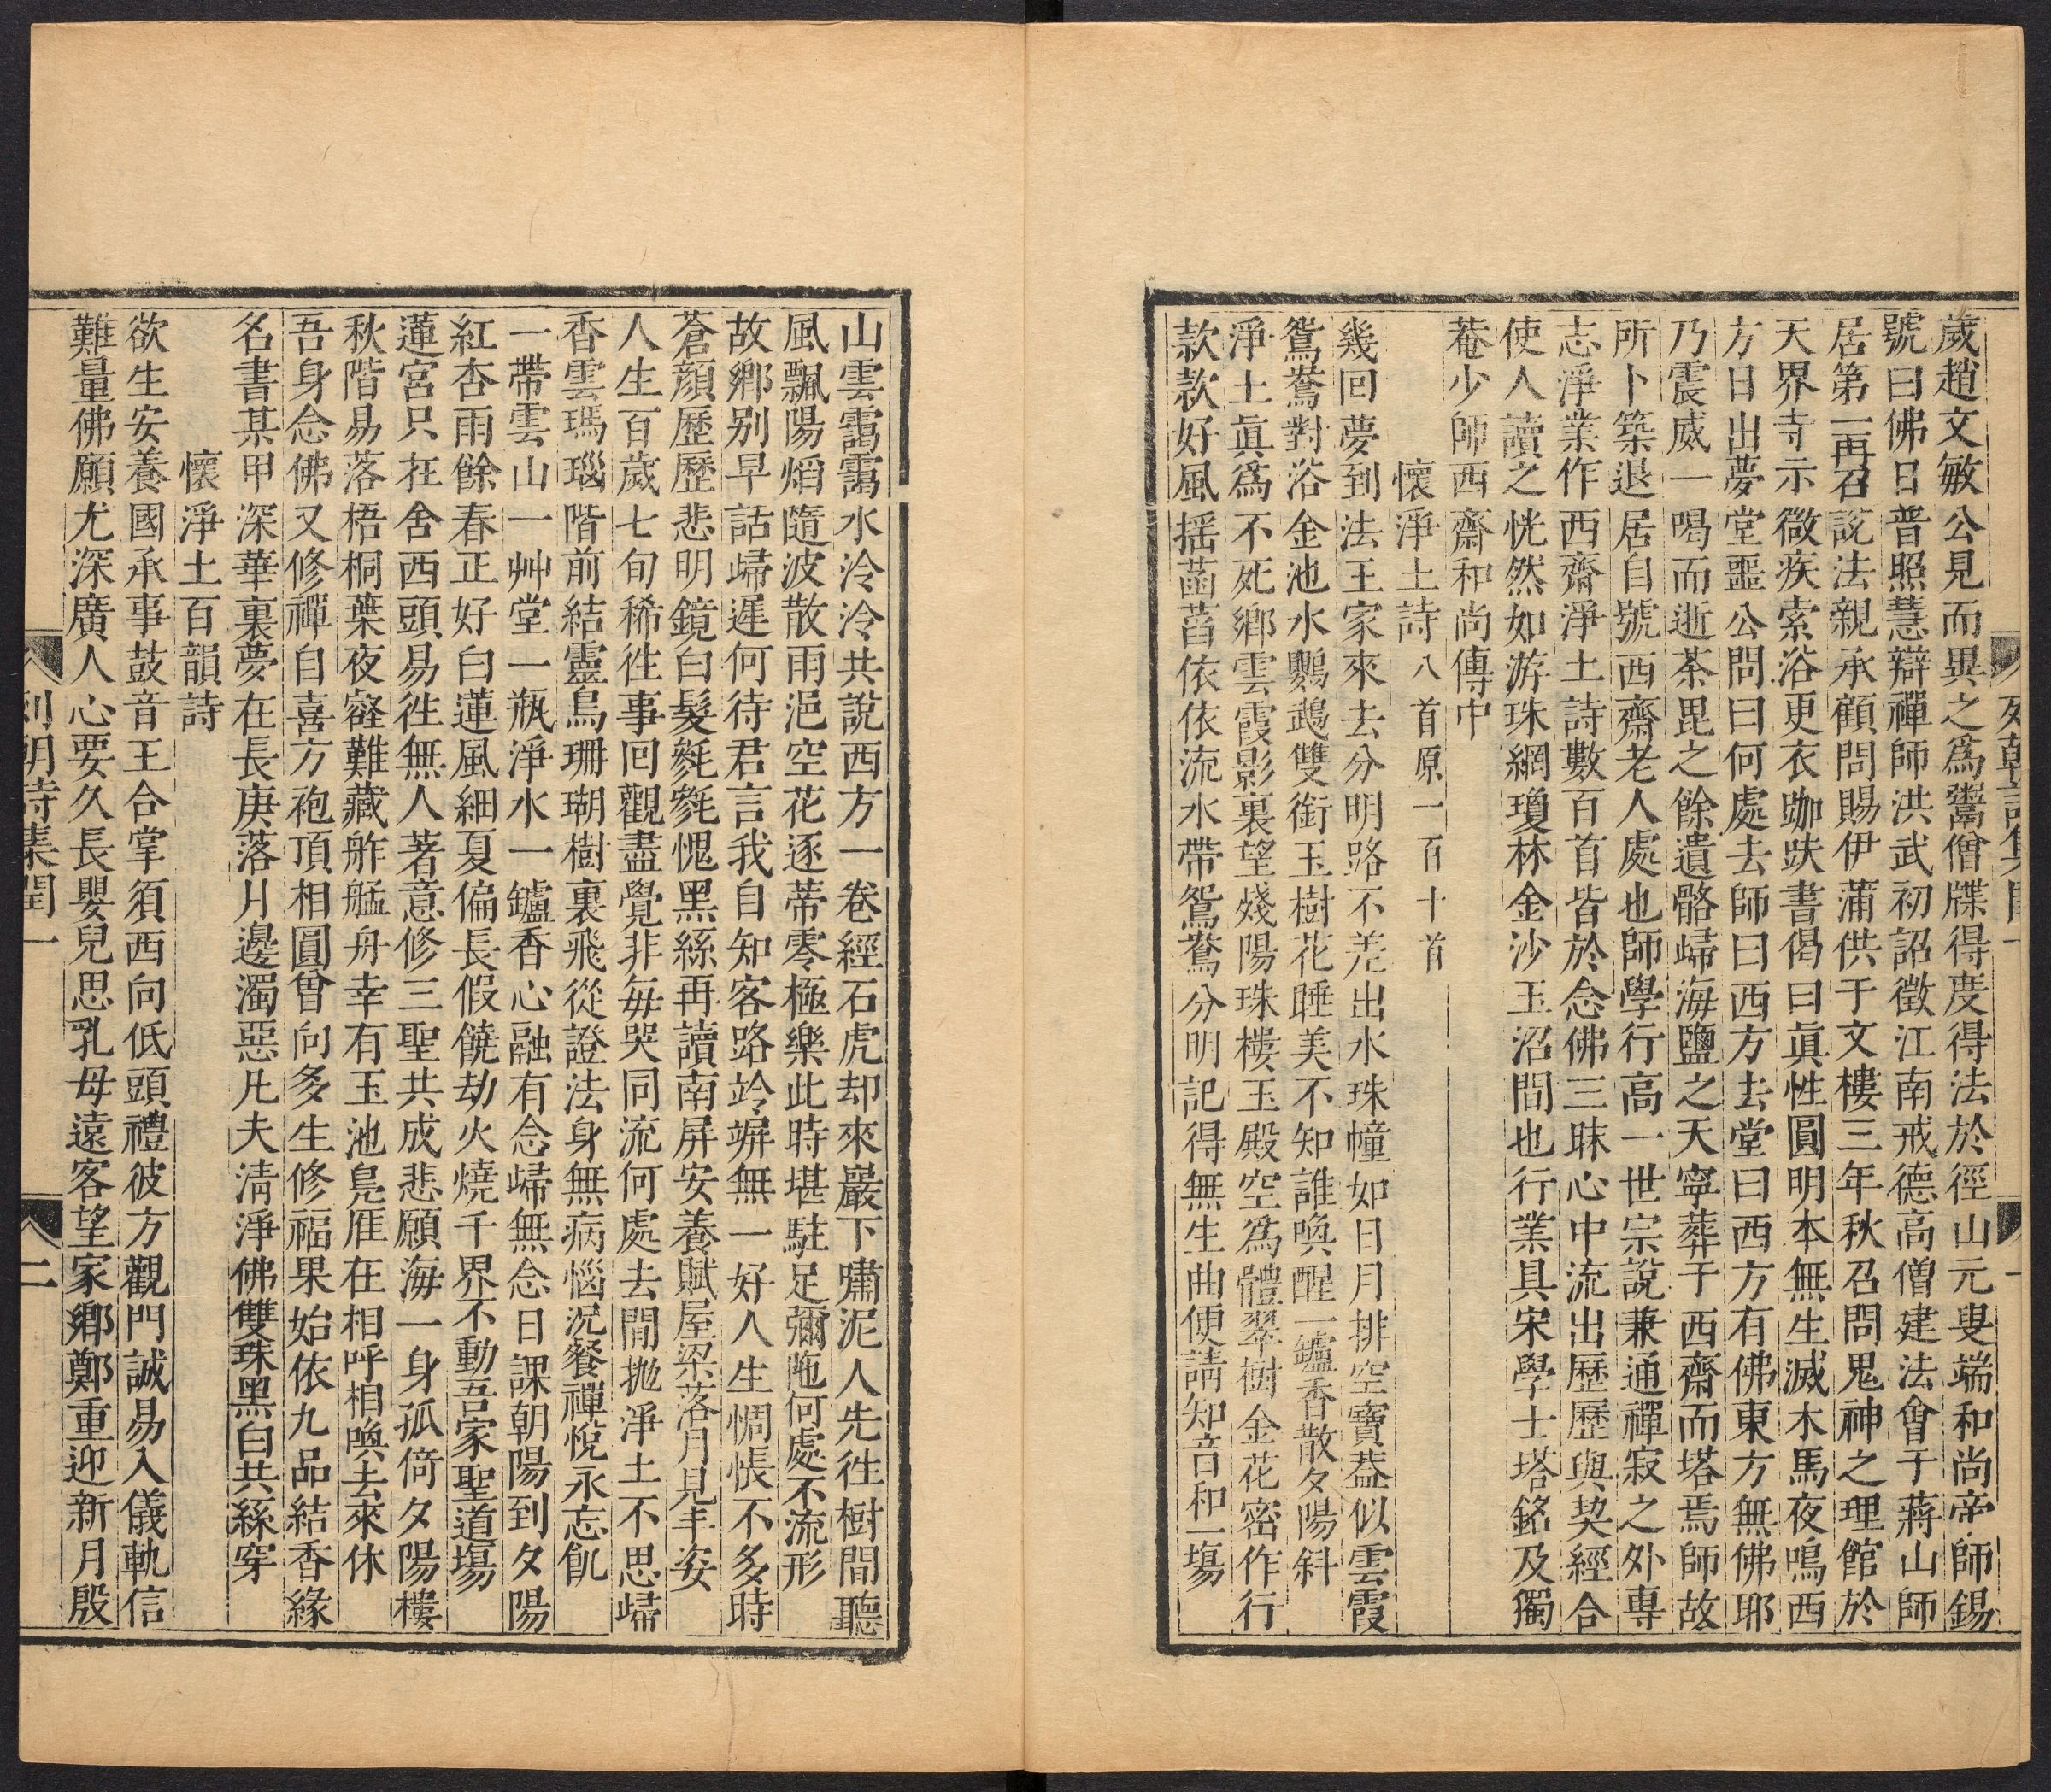 歲趙文敏公見而異之爲鬻僧牒得度得法於徑山元叟端和尚帝師錫
號曰佛日普照慧辯禪師洪武初詔徵江南戒德高僧建法會于蔣山師
居第一再召說法親承顧問賜伊蒲供于文樓三年秋召問鬼神之理館於
天界寺示微疾索浴更衣跏趺書偈曰眞性圓明本無生滅木馬夜鳴西
方日出夢堂噩公問曰何處去師曰西方去堂曰西方有佛東方無佛耶
乃震威一喝而逝茶毘之餘遺骼歸海鹽之天寧葬于西齋而塔焉師故
所卜築退居自號西齋老人處也師學行高一世宗說兼通禪寂之外專
志淨業作西齋淨土詩數百首皆於念佛三昧心中流出歷歷與契經合
使人讀之恍然如游珠網瓊林金沙玉沼間也行業具宋學士塔銘及獨
菴少師西齋和尚傳中
懷淨土詩八首原一百十首
幾回夢到法王家來去分明路不差出水珠幢如日月排空寶葢似雲霞
鴛鴦對浴金池水鸚鵡雙銜玉樹花睡美不知誰喚醒一鑪香散夕陽斜
淨土眞爲不死鄉雲霞影裏望殘陽珠樓玉殿空爲體翠樹金花密作行
款款好風搖菡萏依依流水帶鴛鴦分明記得無生曲便請知音和一塲
山雲靄靄水泠泠共說西方一卷經石虎却來巖下嘯泥人先往樹間聽
風飄陽焰隨波散雨浥空花逐蒂零極樂此時堪駐足彌陁何處不流形
故鄉别早話歸遲何待君言我自知客路竛竮無一好人生惆悵不多時
蒼顔歷歷悲明鏡白髮毿毿愧黑絲再讀南屏安養賦屋梁落月見丰姿
人生百歲七旬稀往事回觀盡覺非每哭同流何處去閒抛淨土不思歸
香雲瑪瑙階前結靈鳥珊瑚樹裏飛從證法身無病惱況餐禪悅永忘飢
一帶雲山一艸堂一瓶淨水一鑪香心融有念歸無念日課朝陽到夕陽
紅杏雨餘春正好白蓮風細夏偏長假饒劫火燒千界不動吾家聖道塲
蓮宮只在舍西頭易徃無人著意修三聖共成悲願海一身孤倚夕陽樓
秋階易落梧桐葉夜壑難藏舴艋舟幸有玉池鳧雁在相呼相喚去來休
吾身念佛又修禪自喜方袍頂相圓曾向多生修福果始依九品結香緣
名書某甲深華裏夢在長庚落月邊濁惡凡夫清淨佛雙珠黑白共絲穿
懷淨土百韻詩
欲生安養國承事鼓音王合掌須西向低頭禮彼方觀門誠易入儀軌信
難量佛願尤深廣人心要久長嬰兒思乳母遠客望家鄉鄭重迎新月殷
列朝詩集閏一 二